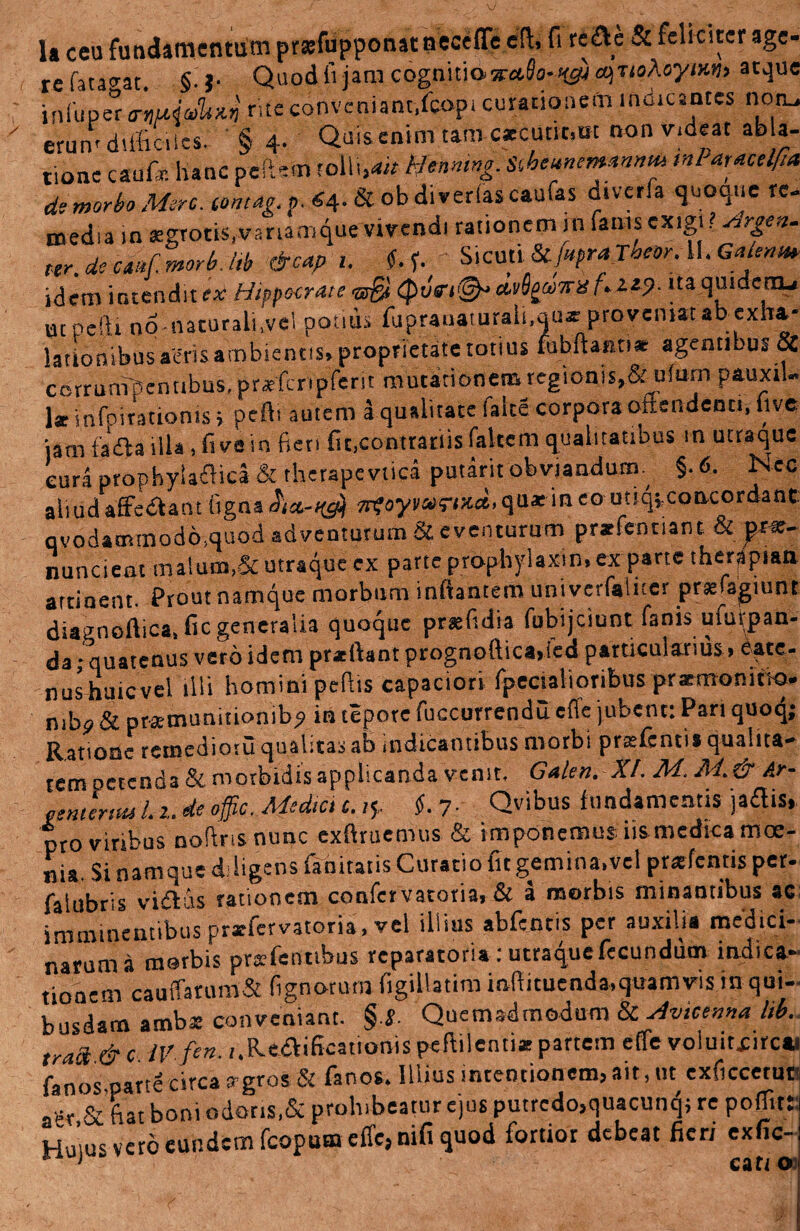 la ceu fundamentum præsupponat necesse est, si rectè & feliciter age-
re satagat. §. 3. Quod si jam cognitio παθο-κ αἰτιολογικὴ, atque
insuper σημειωτικὴ rite conveniant, scopi curationem indicantes non
erunt difficiles. § 4. Quis enim tam cæcutit, ut non videat abla-
tione causæ hanc pestem tolli, ait Henning. Scheunemannus in Paracelsia
de morbo Merc. contag. p. 64. & ob diversas causas diversa quoque re-
media in ægrotis, variamque vivendi rationem in sanis exigi? Argen-
ter. de caus. morb. lib & cap 1. §. 5. Sicuti & supra Theor. 11. Galenus
idem intendit ex Hippocrate φύσι ἀνθρώπου f. 229. ita quidem
ut pesti nō-naturali, vel potiùs supranaturali, quæ proveniat ab exha-
lationibus aëris ambientis, proprietate totius substantiæ agentibus &
corrumpentibus, præscripserit mutationem regionis, & usum pauxil-
læ inspirationis; pesti autem à qualitate saltē corpora offendenti, sive
jam facta illa, sive in fieri sit, contrariis saltem qualitatibus in utraque
curâ prophylacticâ & therapevticâ putârit obviandum. §. 6. Nec
aliud affectant signa δια-κ προγνωστικὰ, quæ in eo utiq; concordant
qvodammodò, quod adventurum & eventurum præsentiant & præ-
nuncient malum, & utraque ex parte prophylaxin, ex parte therapian
attinent. Prout namque morbum instantem universaliter præsagiunt
diagnostica, sic generalia quoque præsidia subijciunt sanis usurpan-
da: quatenus verò idem præstant prognostica, sed particulariùs, eate-
nus huic vel illi homini pestis capaciori specialioribus præmonitio-
nib9 & præmunitionib9 in tēpore succurrendū esse jubent: Pari quoq;
Ratione remediorū qualitas ab indicantibus morbi præsentis qualita-
tem petenda & morbidis applicanda venit. Galen. XI. M. M. & Ar-
genterius l. 2. de offic. Medici c. 15. §. 7. Qvibus fundamentis jactis,
pro viribus nostris nunc exstruemus & imponemus iis medica moe-
nia. Si namque diligens sanitatis Curatio sit gemina, vel præsentis per-
salubris victûs rationem conservatoria, & à morbis minantibus ac
imminentibus præservatoria, vel illius absentis per auxilia medici-
narum à morbis præsentibus reparatoria: utraque secundùm indica-
tionem caussarum & signorum sigillatim instituenda, quamvis in qui-
busdam ambæ conveniant. §. 8. Quemadmodum & Avicenna lib.
tract. & c. IV. fen. 1. Rectificationis pestilentiæ partem esse voluit, circa
sanos, partē circa ægros & sanos. Illius intentionem, ait, ut exsiccetur
aër, & fiat boni odoris, & prohibeatur ejus putredo, quacunq; re possit:
Hujus verò eundem scopum esse, nisi quod fortior debeat fieri exsic-
catio